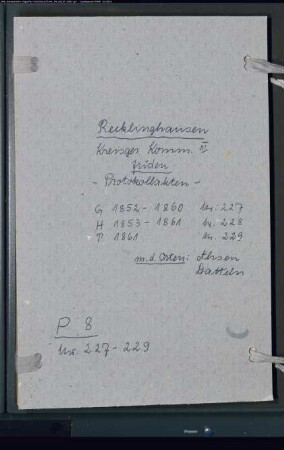 Recklinghausen
Kreisger. Komm. II
Juden
- Protokollakten -
G 1852 - 1860 Nr. 227
H 1853 - 1861 Nr. 228
P 1861 Nr. 229
m. d. Orten: Ahsen
Datteln
P 8
Nr. 227 - 229